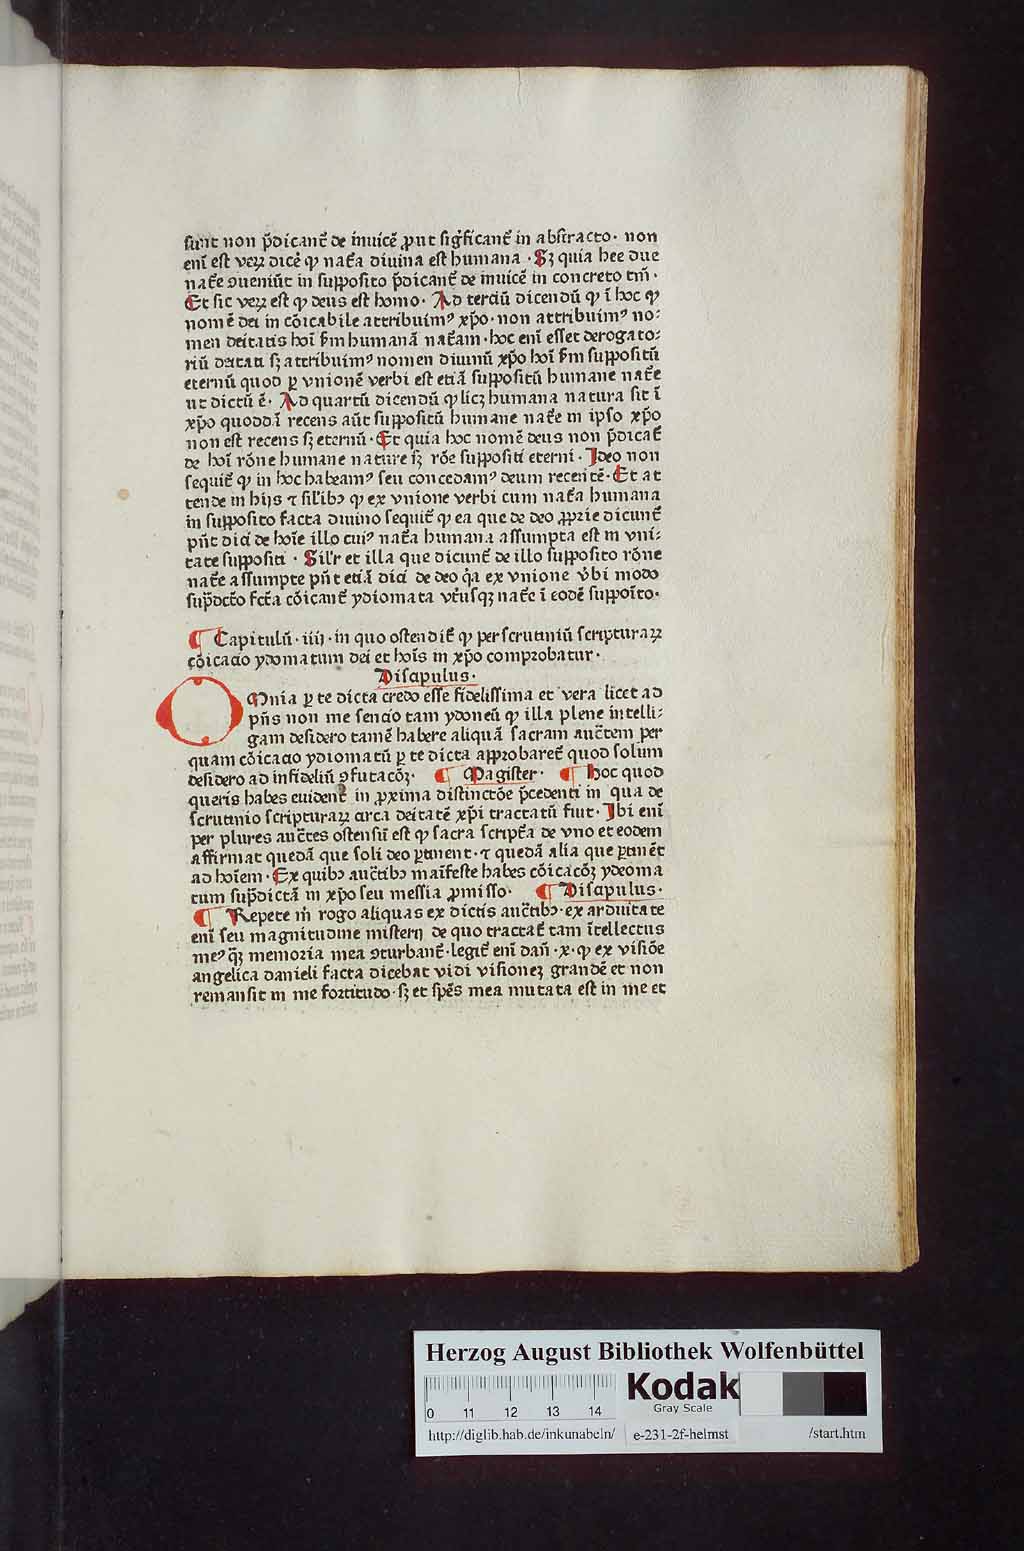 sunt non p̄dicant᷑ de inuicē ꝓut sigͥficant᷑ in abstracto· non
enī est veꝝ dicē ꝙ nat᷑a diuina est humana · Sꝫ quia hee due
nat᷑e ꝯueniūt in supposito p̄dicant᷑ de inuicē in concreto tm̄·
Et sic veꝝ est ꝙ deus est homo· Ad terciū dicendū ꝙ ī hoc ꝙ
nomē dei in cōicabile attribuimꝰ xp̄o· non attribuimꝰ no⸗
men deitatis hoī ẜm humanā nat᷑am· hoc enī esset derogato⸗
riū deitati sꝫ attribuimꝰ nomen diuinū xp̄o hoī ẜm suppositū
eternū quod ꝑ vnionē verbi est etiā suppositū humane nat᷑e
ut dictū ē· Ad quartū dicendū ꝙ licꝫ humana natura sit ī
xp̄o quoddā recens aūt suppositū humane nat᷑e in ipso xp̄o
non est recens sꝫ eternū· Et quia hoc nomē deus non p̄dicat᷑
de hoī rōne humane nature sꝫ rōe suppositi eterni· Ideo non
sequit᷑ ꝙ in hoc habeamꝰ seu concedamꝰ deum recentē· Et at
tende in hijs ⁊ sil'ibꝰ ꝙ ex vnione verbi cum nat᷑a humana
in supposito facta diuino sequit᷑ ꝙ ea que de deo ꝓprie dicunt᷑
pn̄t dici de hoīe illo cuiꝰ nat᷑a humana assumpta est in vni⸗
tate suppositi · Sil'r et illa que dicunt᷑ de illo supposito rōne
nat᷑e assumpte pn̄t etiā dici de deo q̄a ex vnione v̄bi modo
sup̄dcō fcta cōicant᷑ ydiomata vt᷑usqꝫ nat᷑e ī eodē suppoīto·
¶ Capitulū· iiij · in quo ostendit᷑ ꝙ per scrutiniū scripturaꝝ
cōicacio ydomatum dei et hoīs in xp̄o comprobatur·
Discipulus·
Omnia ꝑ te dicta credo esse fidelissima et vera licet ad
pn̄s non me sencio tam ydoneū ꝙ illa plene intelli⸗
gam desidero tamē habere aliquā sacram auct᷑em per
quam cōicacio ydiomatū ꝑ te dicta approbaret᷑ quod solum
desidero ad infideliū ꝯfutacōꝫ· ¶ Magister· ¶ Hoc quod
queris habes euident᷑ in ꝓxima distinctōe p̄cedenti in qua de
scrutinio scripturaꝝ circa deitatē xp̄i tractatū fiut· Ibi enī
per plures auct᷑es ostensū est ꝙ sacra script᷑a de vno et eodem
affirmat quedā que soli deo ꝑtinent· ⁊ quedā alia que ꝑtinēt
ad hoīem· Ex quibꝰ auct᷑ibꝰ maīfeste habes cōicacōꝫ ydeoma
tum sup̄dictā in xp̄o seu messia ꝓmisso· ¶ Discipulus·
¶ Repete m̄ rogo aliquas ex dictis auct᷑ibꝰ· ex arduitate
enī seu magnitudine misterij de quo tractat᷑ tam ītellectus
meꝰ q̄ꝫ memoria mea ꝯturbant᷑· legit᷑ enī dan̄ ·x· ꝙ ex visiōe
angelica danieli facta dicebat vidi visionеꝫ grandē et non
remansit in me fortitudo· sꝫ et spēs mea mutata est in me et
Herzog August Bibliothek Wolfenbüttel
0 11 12 13 14
Kodak
Gray Scale
http://diglib.hab.de/inkunabeln/ e-231-2f-helmst /start.htm